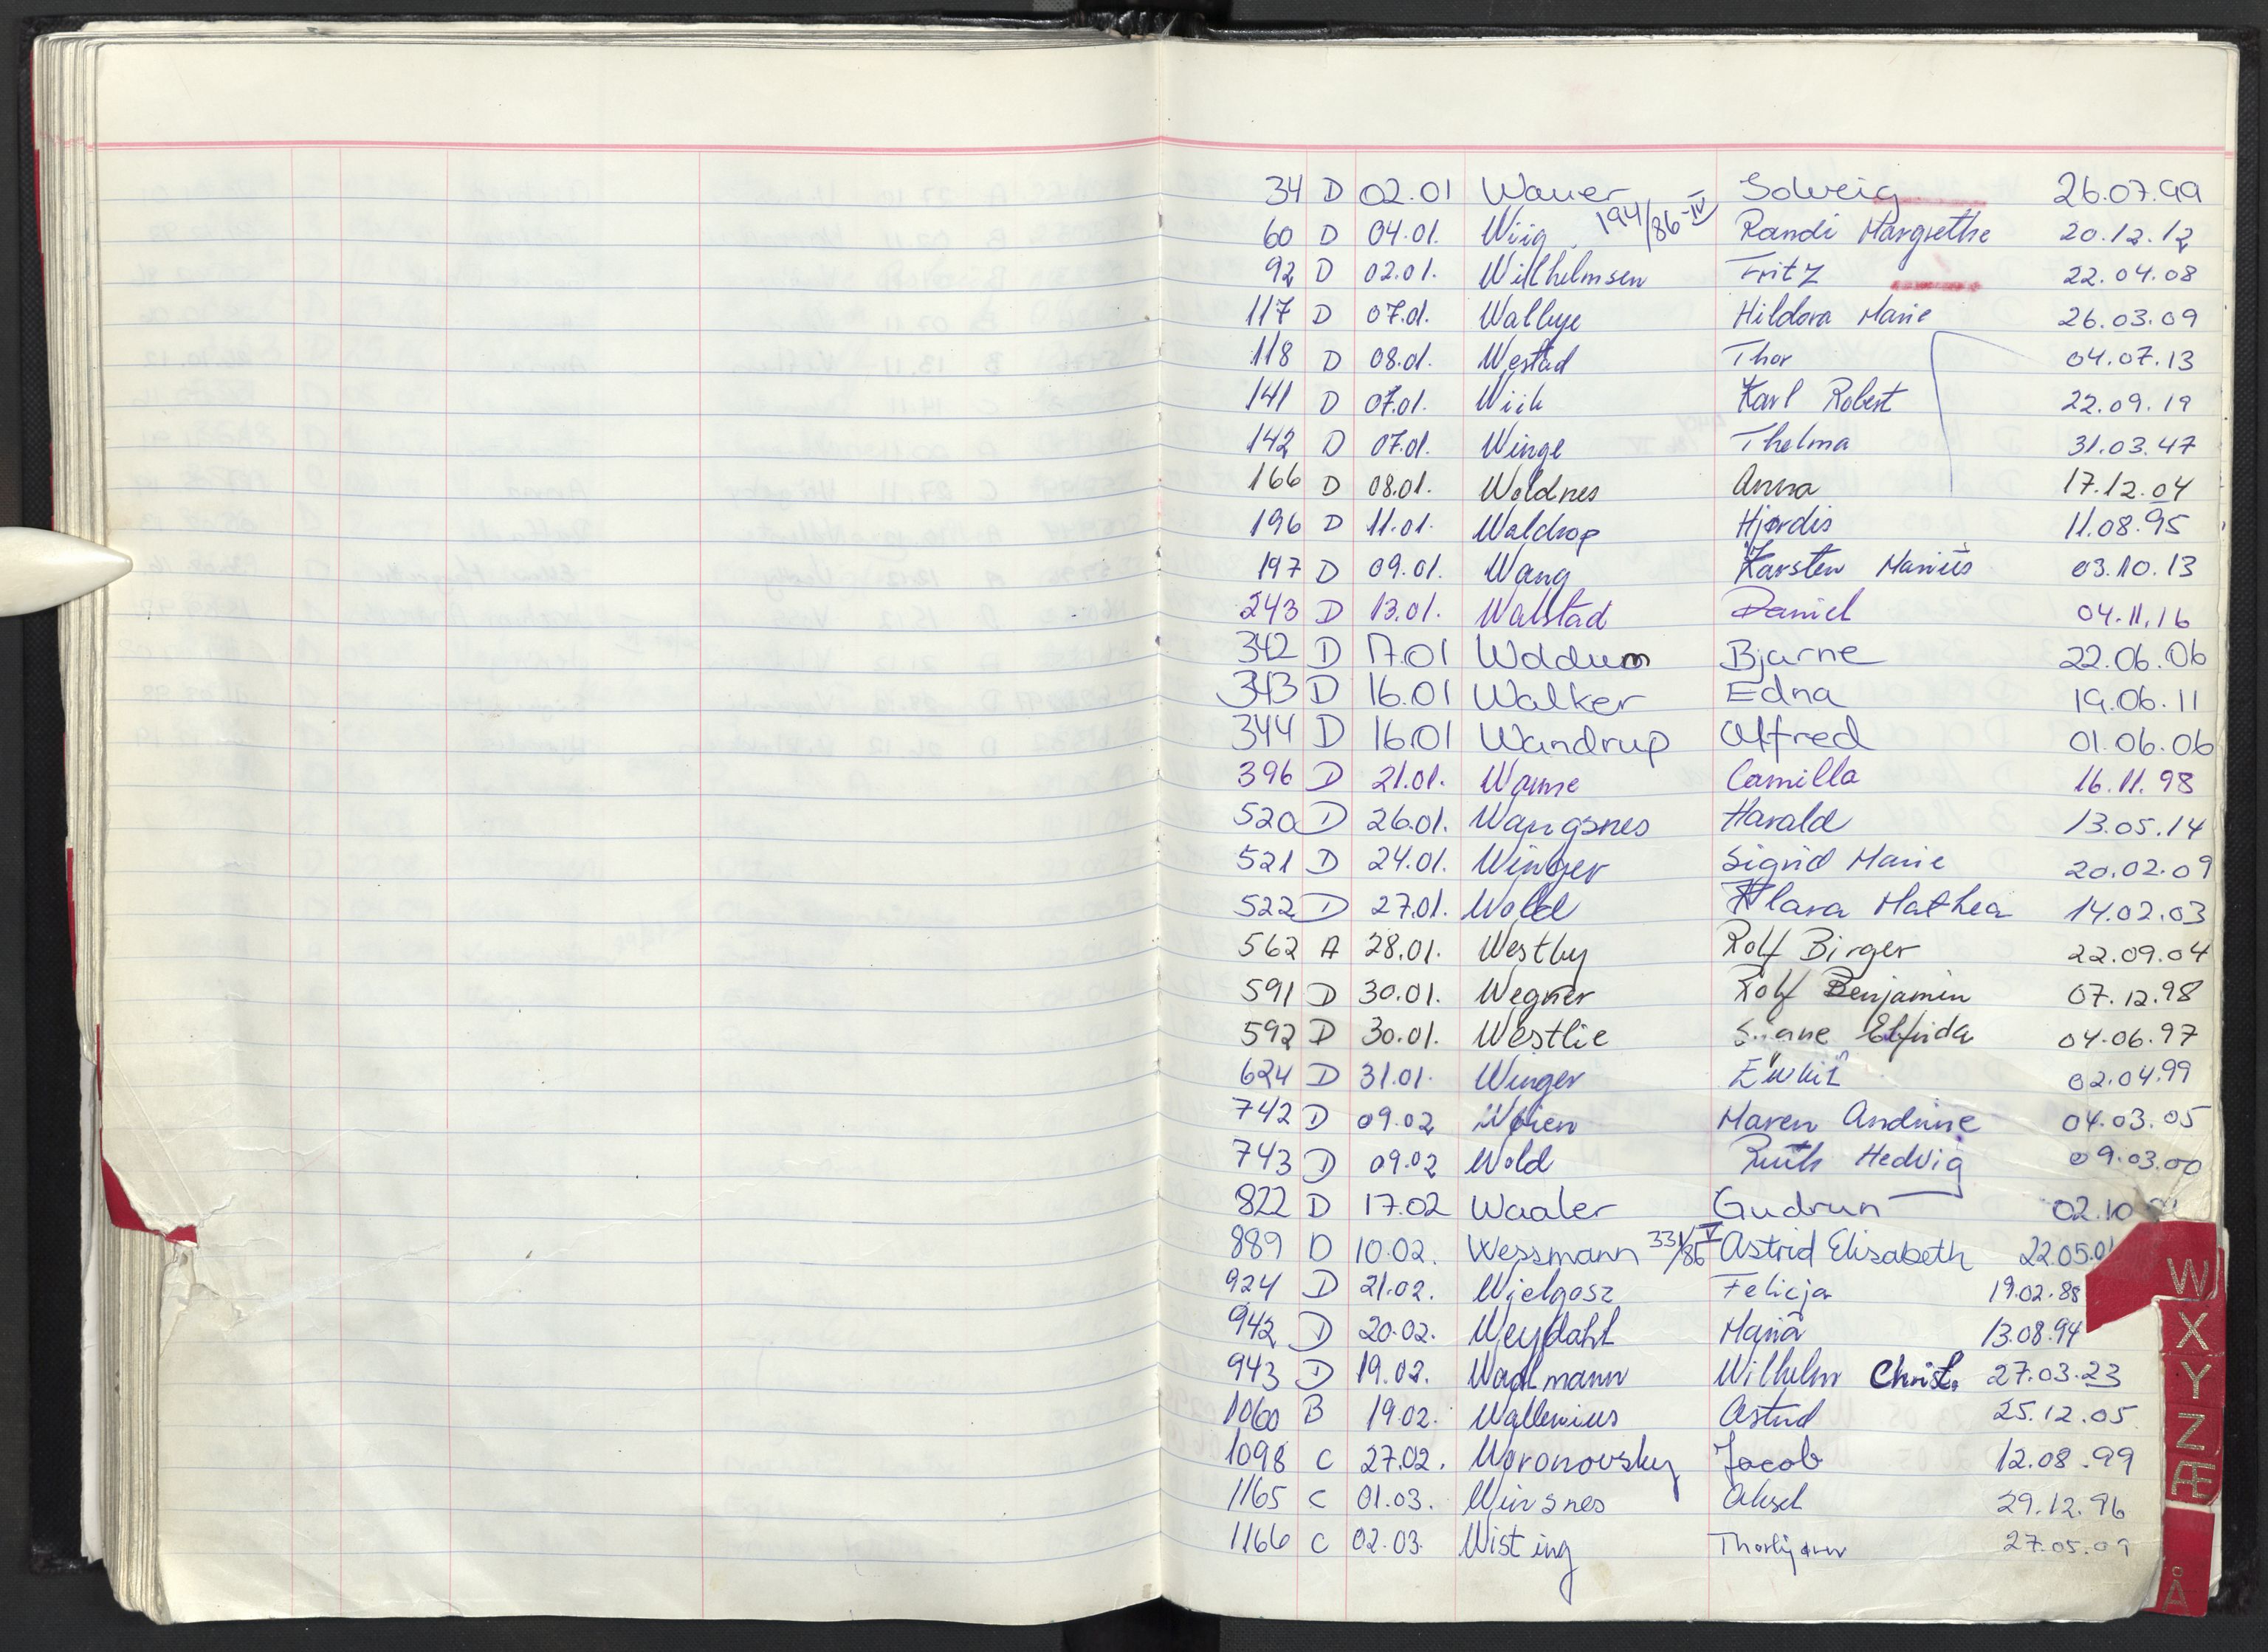 34 D 02.01 Wauer Solveig 26.07.99
60 D 04.01. Wiig 194/86-IV Randi Margrethe 20.12.12
92 D 02.01. Wilhelmsen Fritz 22.04.08
117 D 07.01. Walbye Hildora Marie 26.03.09
118 D 08.01. Westad Thor 04.07.13
141 D 07.01. Wiik Karl Robert 22.09.19
142 D 07.01. Winge Thelma 31.03.47
166 D 08.01. Woldnes Anna 17.12.04
196 D 11.01. Waldrop Hjørdis 11.08.95
197 D 09.01. Wang Karsten Marius 03.10.13
243 D 13.01. Walstad Daniel 04.11.16
342 D 17.01 Woldum Bjarne 22.06.06
343 D 16.01 Walker Edna 19.06.11
344 D 16.01 Wandrup Alfred 01.06.06
396 D 21.01. Camilla 16.11.98
520 D 26.01. Wangsnes Harald 13.05.14
521 D 24.01. Winger Sigrid Marie 20.02.09
522 D 27.01. Wold Klara Mathea 14.02.03
562 A 28.01. Westby Rolf Birger 22.09.04
591 D 30.01. Wegner Rolf Benjamin 07.12.98
592 D 30.01. Westlie Signe Elfrida 04.06.97
624 D 31.01. Winger 02.04.99
742 D 09.02 Wøien Maren Andrine 04.03.05
743 D 09.02 Wold Ruth Hedvig 09.03.00
822 D 17.02 Waaler Gudrun 02.10
889 D 10.02. Wessmann 331/86 V Astrid Elisabeth 22.05.01
924 D 21.02. Wielgosz Felicja 19.02.88
942 D 20.02. Weydahl Maria 13.08.94
943 D 19.02. Wadlmann Wilhelm Christ. 27.03.23
1060 B 19.02. Wallenius Astrid 25.12.05
1098 C 27.02. Woronovsky Jacob 12.08.99
1165 C 01.03. Winsnes Aksel 29.12.96
1166 C 02.03. Wisting Thorbjørn 27.05.09
W
X
Y
Z
Æ
Å